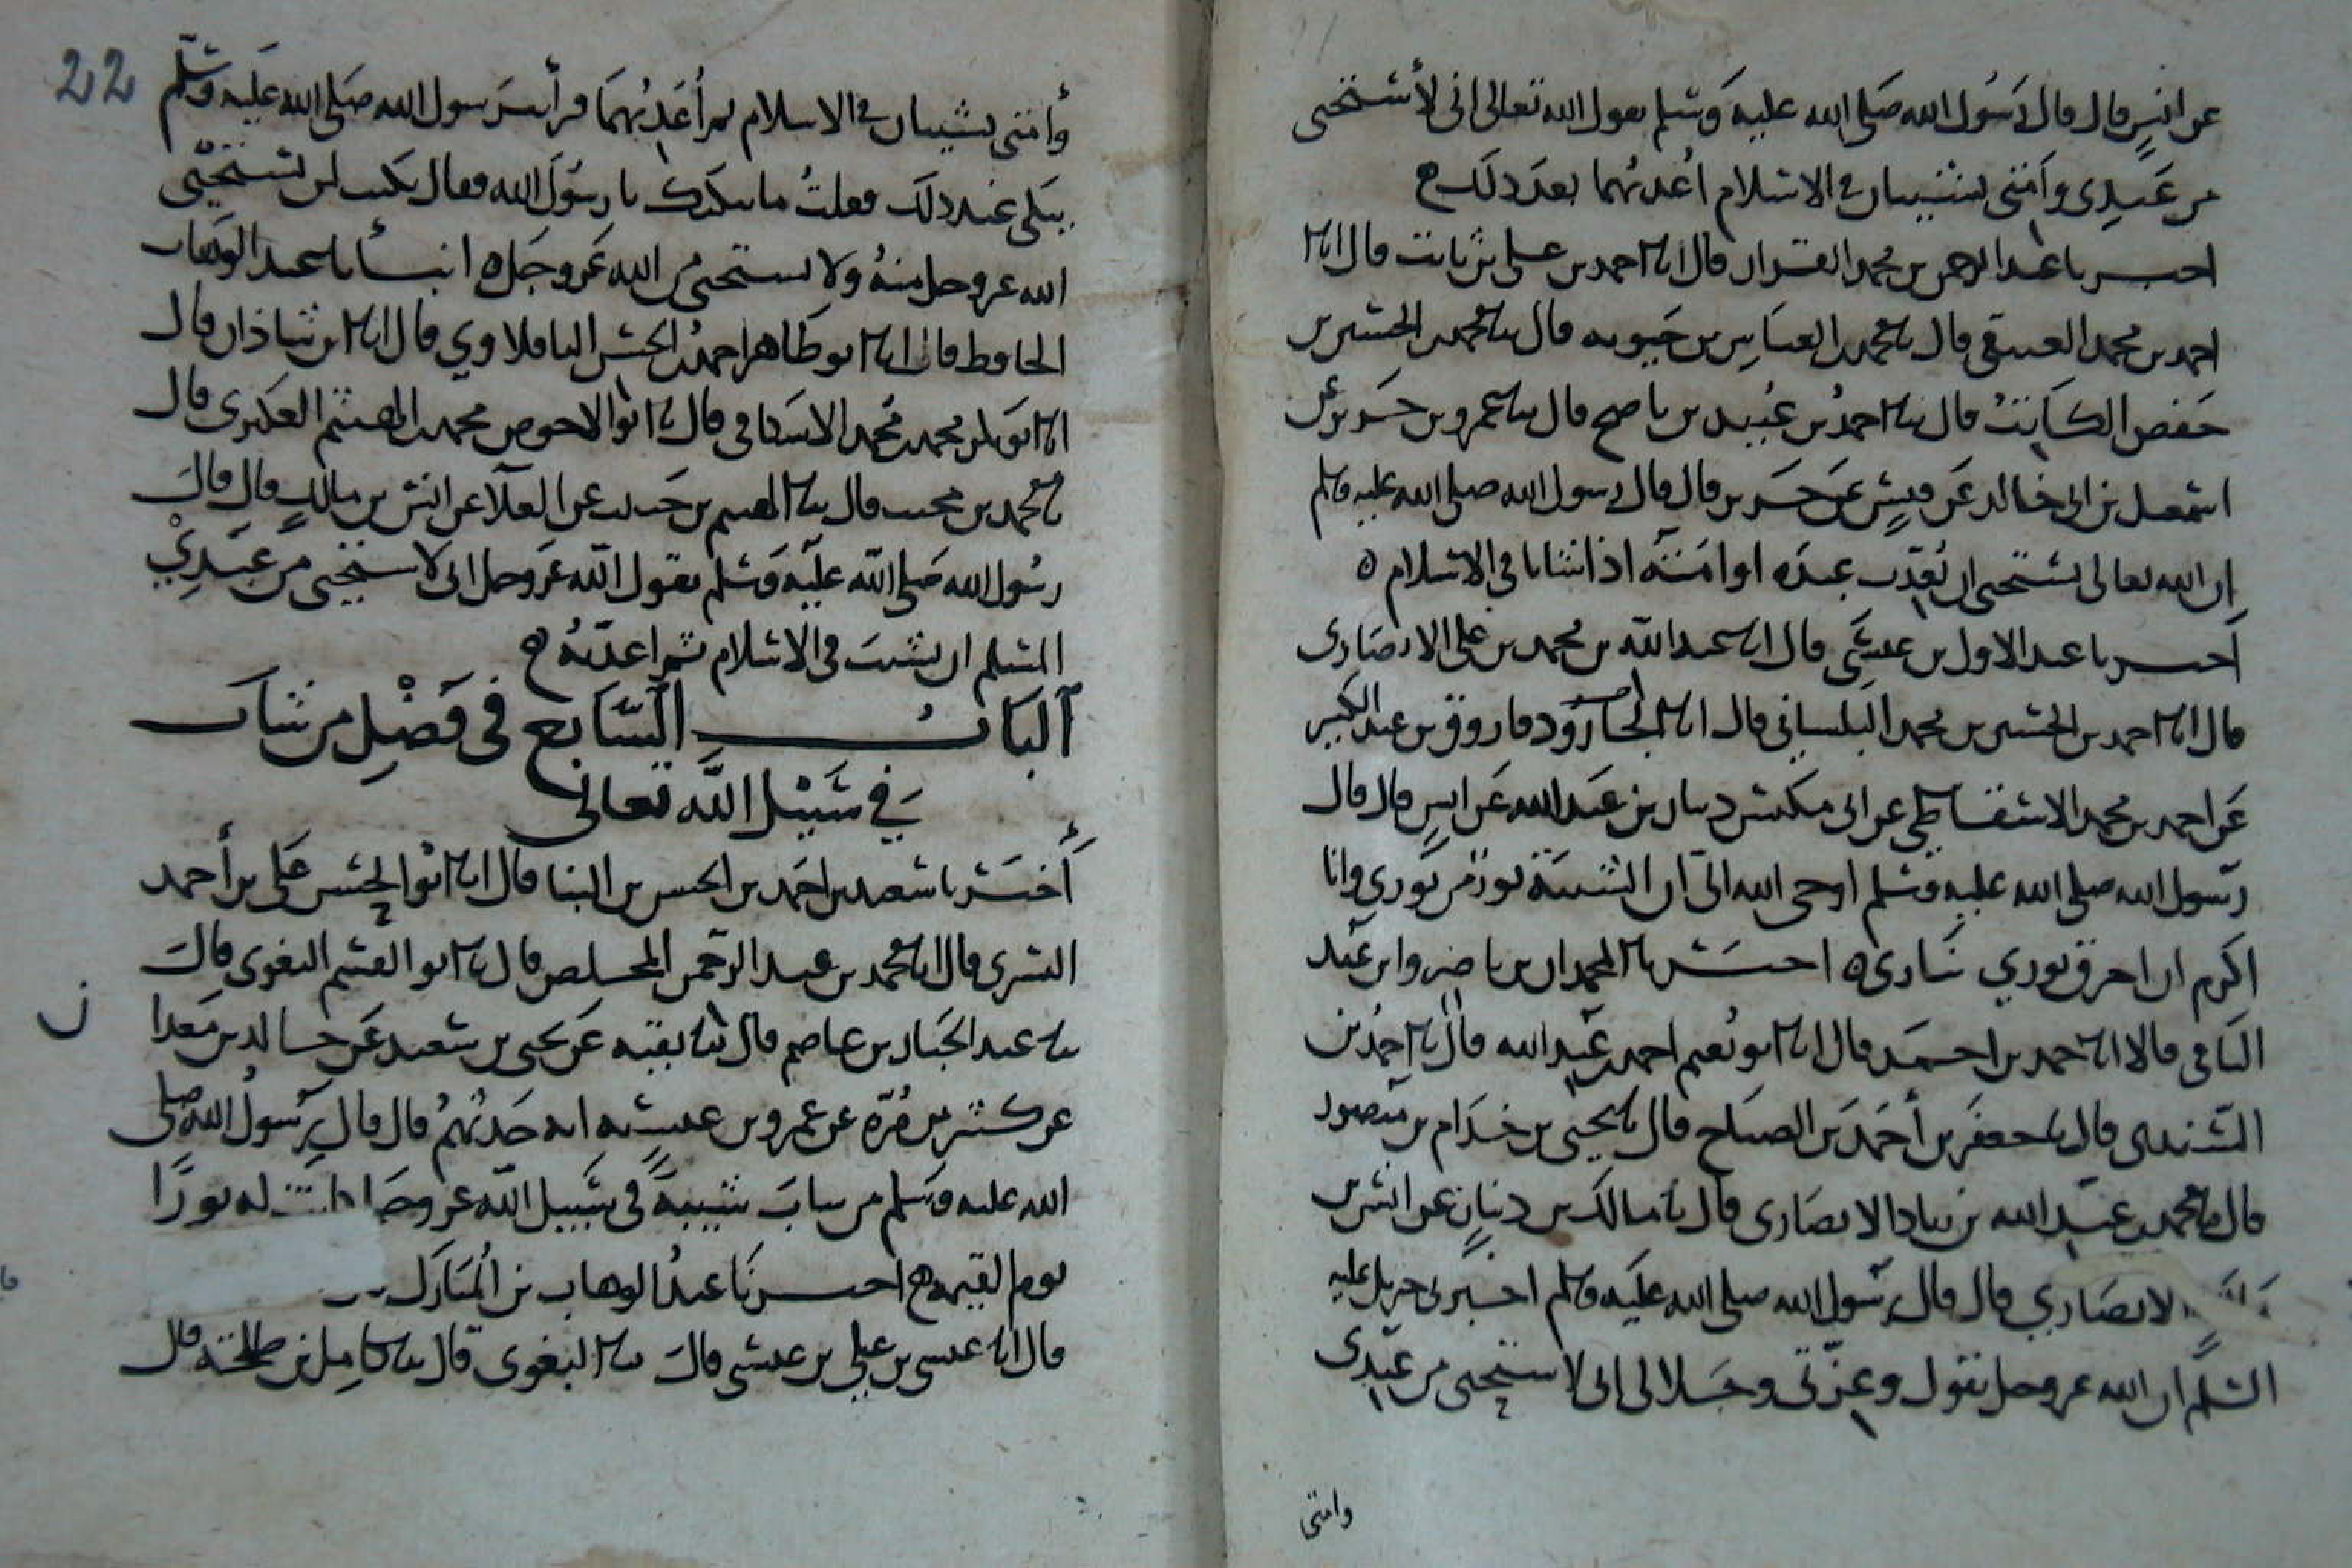 عن انس قال قال رسول الله صلى الله عليه وسلم يقول الله تعالى انى لأستحيى
من عبدى وأمتى يشيبان فى الاسلام اعذبهما بعد ذلك
اخبرنا عبد الرحمن بن محمد القزاز قال انا احمد بن على بن ثابت قال انا
احمد بن محمد العتيقى قال نا محمد بن العباس بن حيويه قال نا محمد بن الحسين بن
حفص الكاتب قال نا احمد بن عبيد بن ناصح قال نا عمرو بن جرير عن
اسمعيل بن ابى خالد عن قيس عن جرير قال قال رسول الله صلى الله عليه وسلم
ان الله تعالى يستحيى ان يعذب عبده او امته اذا شابا فى الاسلام
اخبرنا عبد الاول بن عيسى قال انا عبد الله بن محمد بن على الانصارى
قال انا احمد بن الحسين بن محمد قال انا الجارود فاروق بن عبد الكبير
عن احمد بن محمد الاسفاطى عن ابى مكيس دينار بن عبد الله عن انس قال قال
رسول الله صلى الله عليه وسلم اوحى الله الىّ ان الشيبة نور من نورى وانا
اكرم ان احرق نورى بنارى اخبرنا المحمدان بن ناصر وابن عبد
الباقى قالا انا حمد بن احمد قال انا ابو نعيم احمد بن عبد الله قال نا احمد بن
السندى قال نا جعفر بن أحمد بن الصباح قال نا يحيى بن خذام بن منصور
قال نا محمد بن عبد الله بن زياد الانصارى قال نا مالك بن دينار عن انس بن
الانصارى قال قال رسول الله صلى الله عليه وسلم اخبرنى جبريل عليه
السلم ان الله عز وجل يقول وعزتى وجلالى انى لاستحيى من عبدى
وامتى
22
وأمتى يشيبان فى الاسلام ثم أعذبهما فرأيت رسول الله صلى الله عليه وسلم
يبكى عند ذلك فقلت ما يبكيك يا رسول الله فقال بكيت لمن يستحيى
الله عز وجل منه ولا يستحيى من الله عز وجل انبأنا عبد الوهاب
الحافظ قال انا ابو طاهر احمد بن الحسن الباقلاوي قال انا ابن شاذان قال
انا ابو بكر محمد بن محمد الاسكافى قال نا ابو الاحوص محمد بن الهيثم العكبرى قال
نا محمد بن قال نا الهيثم بن عن العلآ عن انس بن مالك قال قال
رسول الله صلى الله عليه وسلم يقول الله عز وجل انى لاستحيى من عبدي
المسلم ان يشيب فى الاسلام ثم اعذبه
الباب السابع فى فضل من شاب
في سبيل الله تعالى
أخبرنا سعيد بن احمد بن الحسن بن البنا قال انا ابو الحسن على بن أحمد
البسرى قال انا محمد بن عبد الرحمن المخلص قال نا ابو القسم البغوى قال
نا عبد الجبار بن عاصم قال نا بقيه عن يحيى بن سعيد عن خالد بن معدا
ن
عن كثير بن مرة عن عمرو بن عبسه انه حدثهم قال قال رسول الله صلى
الله عليه وسلم من شاب شيبة فى سبيل الله عز وجل كانت له نورا
يوم القيمه اخبرنا عبد الوهاب بن المبارك
قال انا عيسى بن على بن عيسى قال نا البغوى قال نا كامل بن طلحة قال